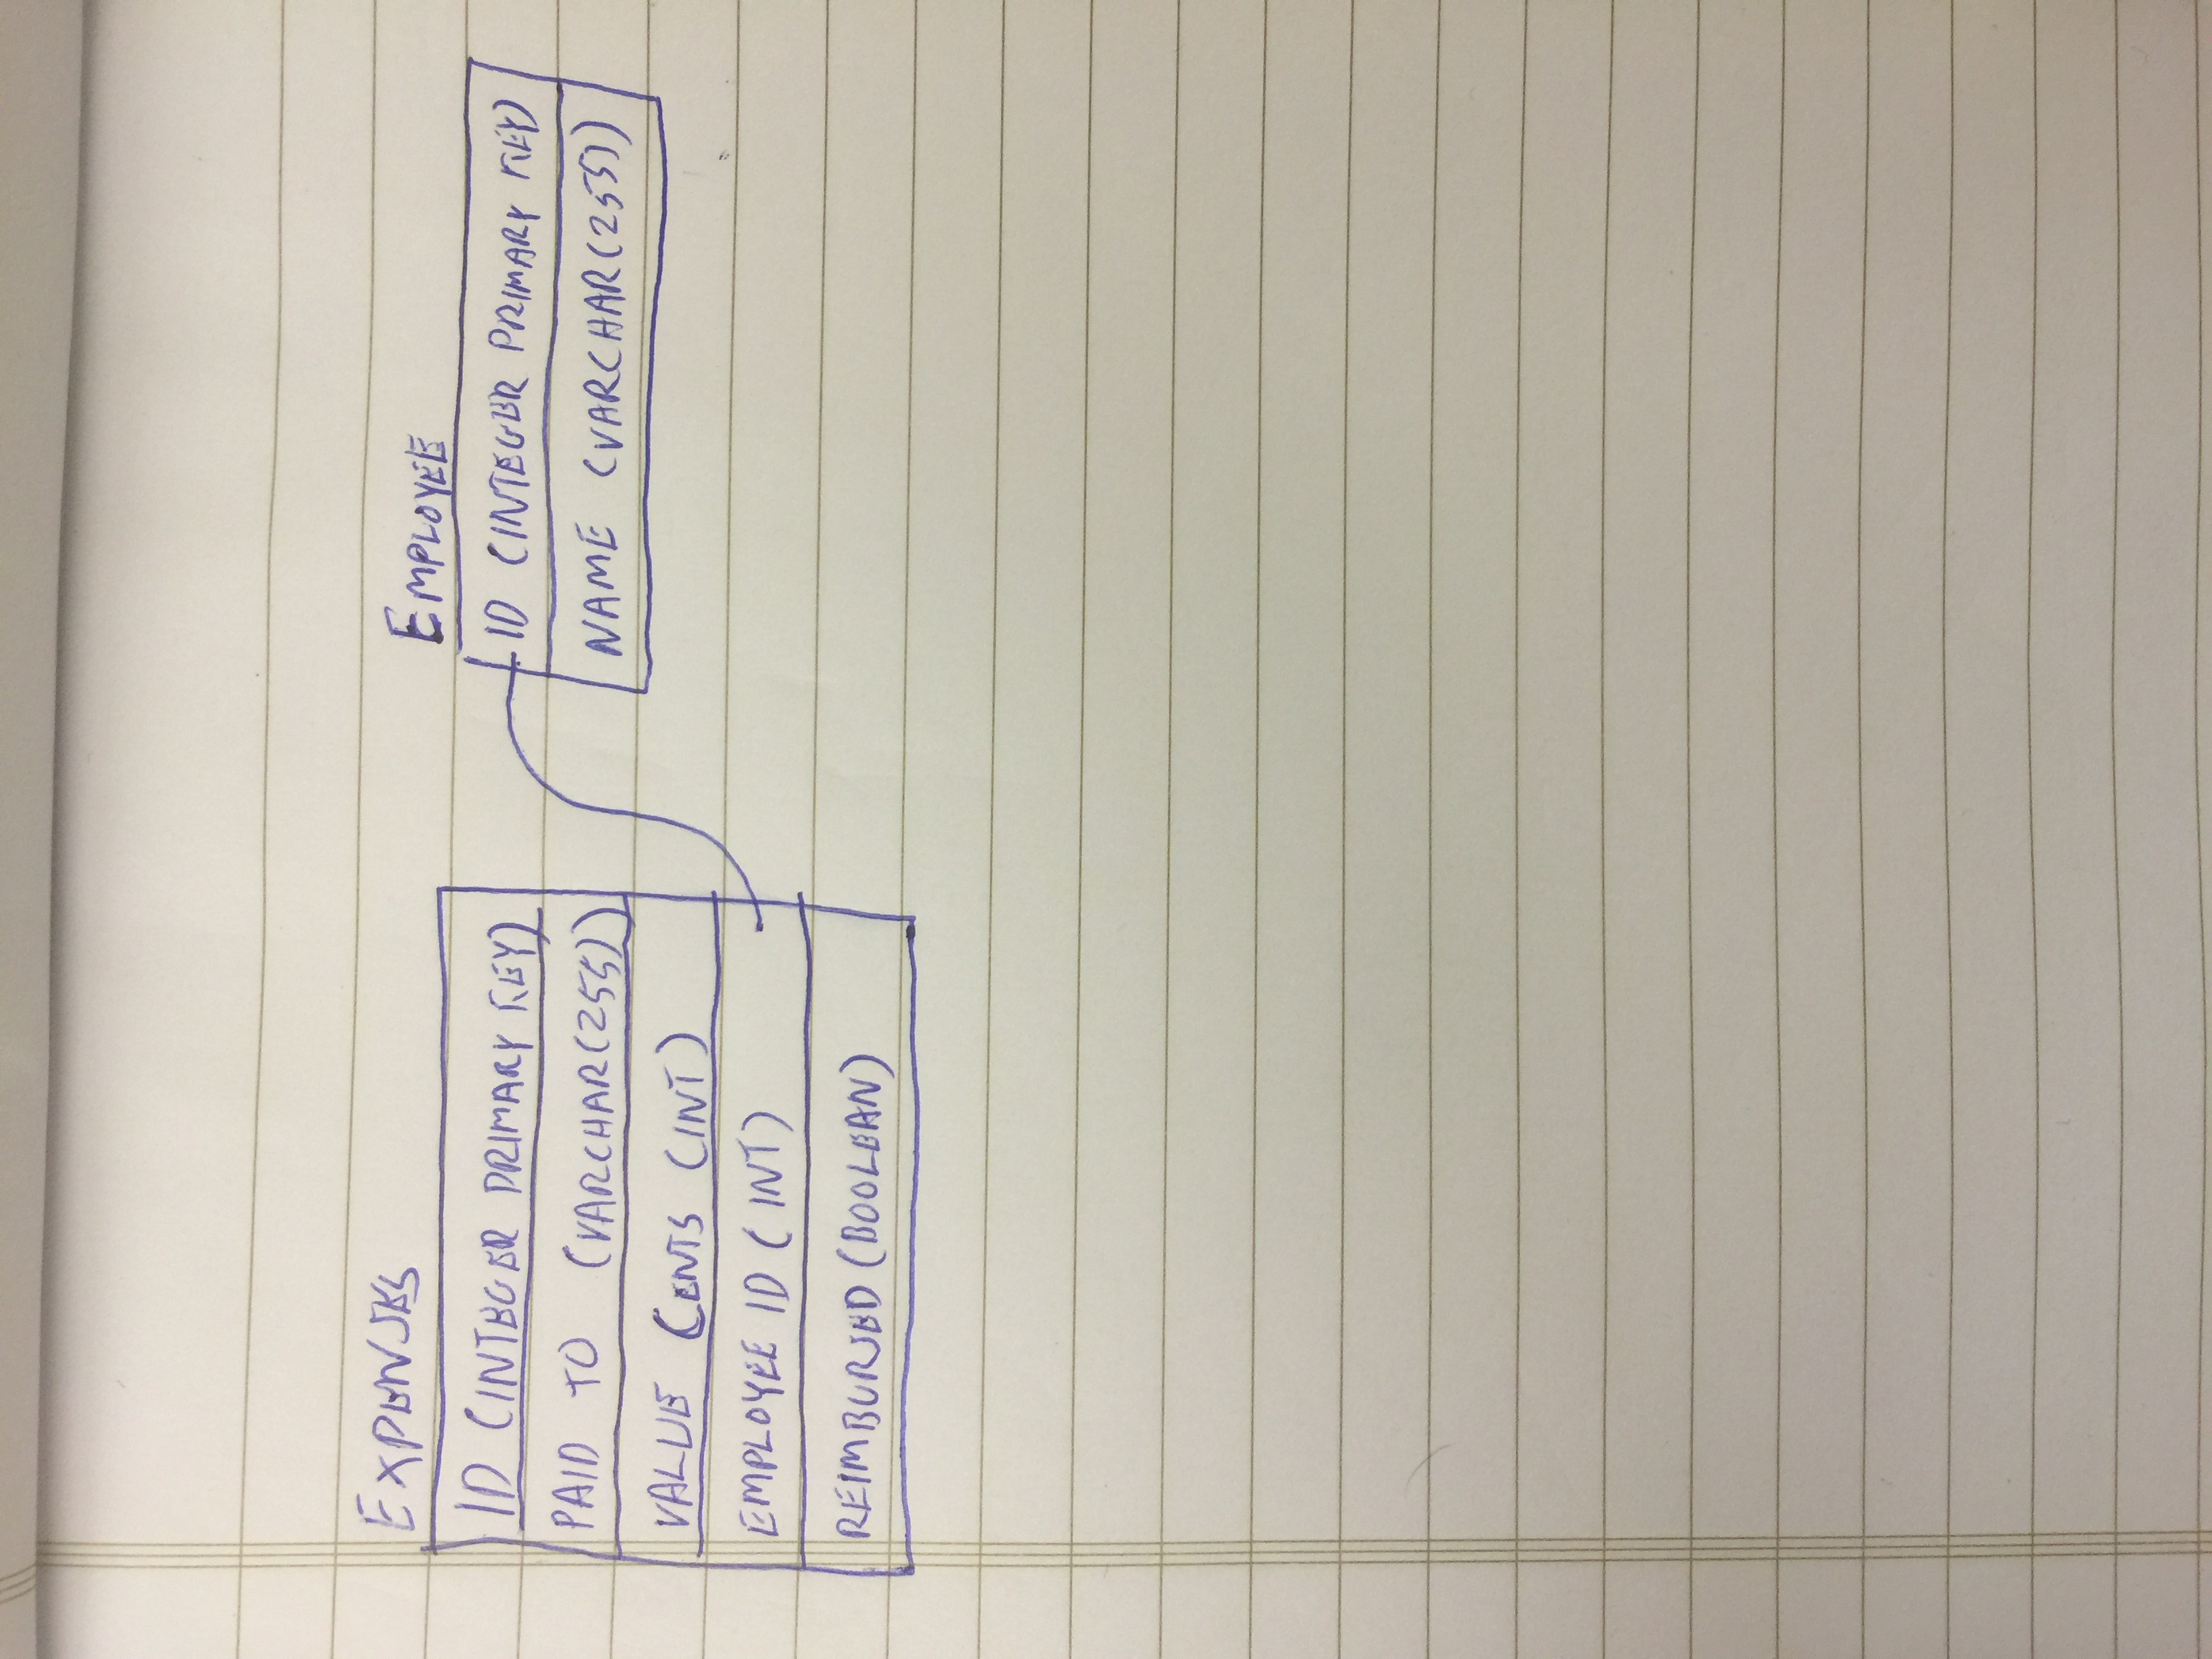 EXPENSES
ID (INTEGER PRIMARY KEY)
PAID TO (VARCHAR(255))
VALUE CENTS (INT)
EMPLOYEE ID (INT)
REIMBURSED (BOOLEAN)
EMPLOYEE
ID (INTEGER PRIMARY KEY)
NAME (VARCHAR(255))